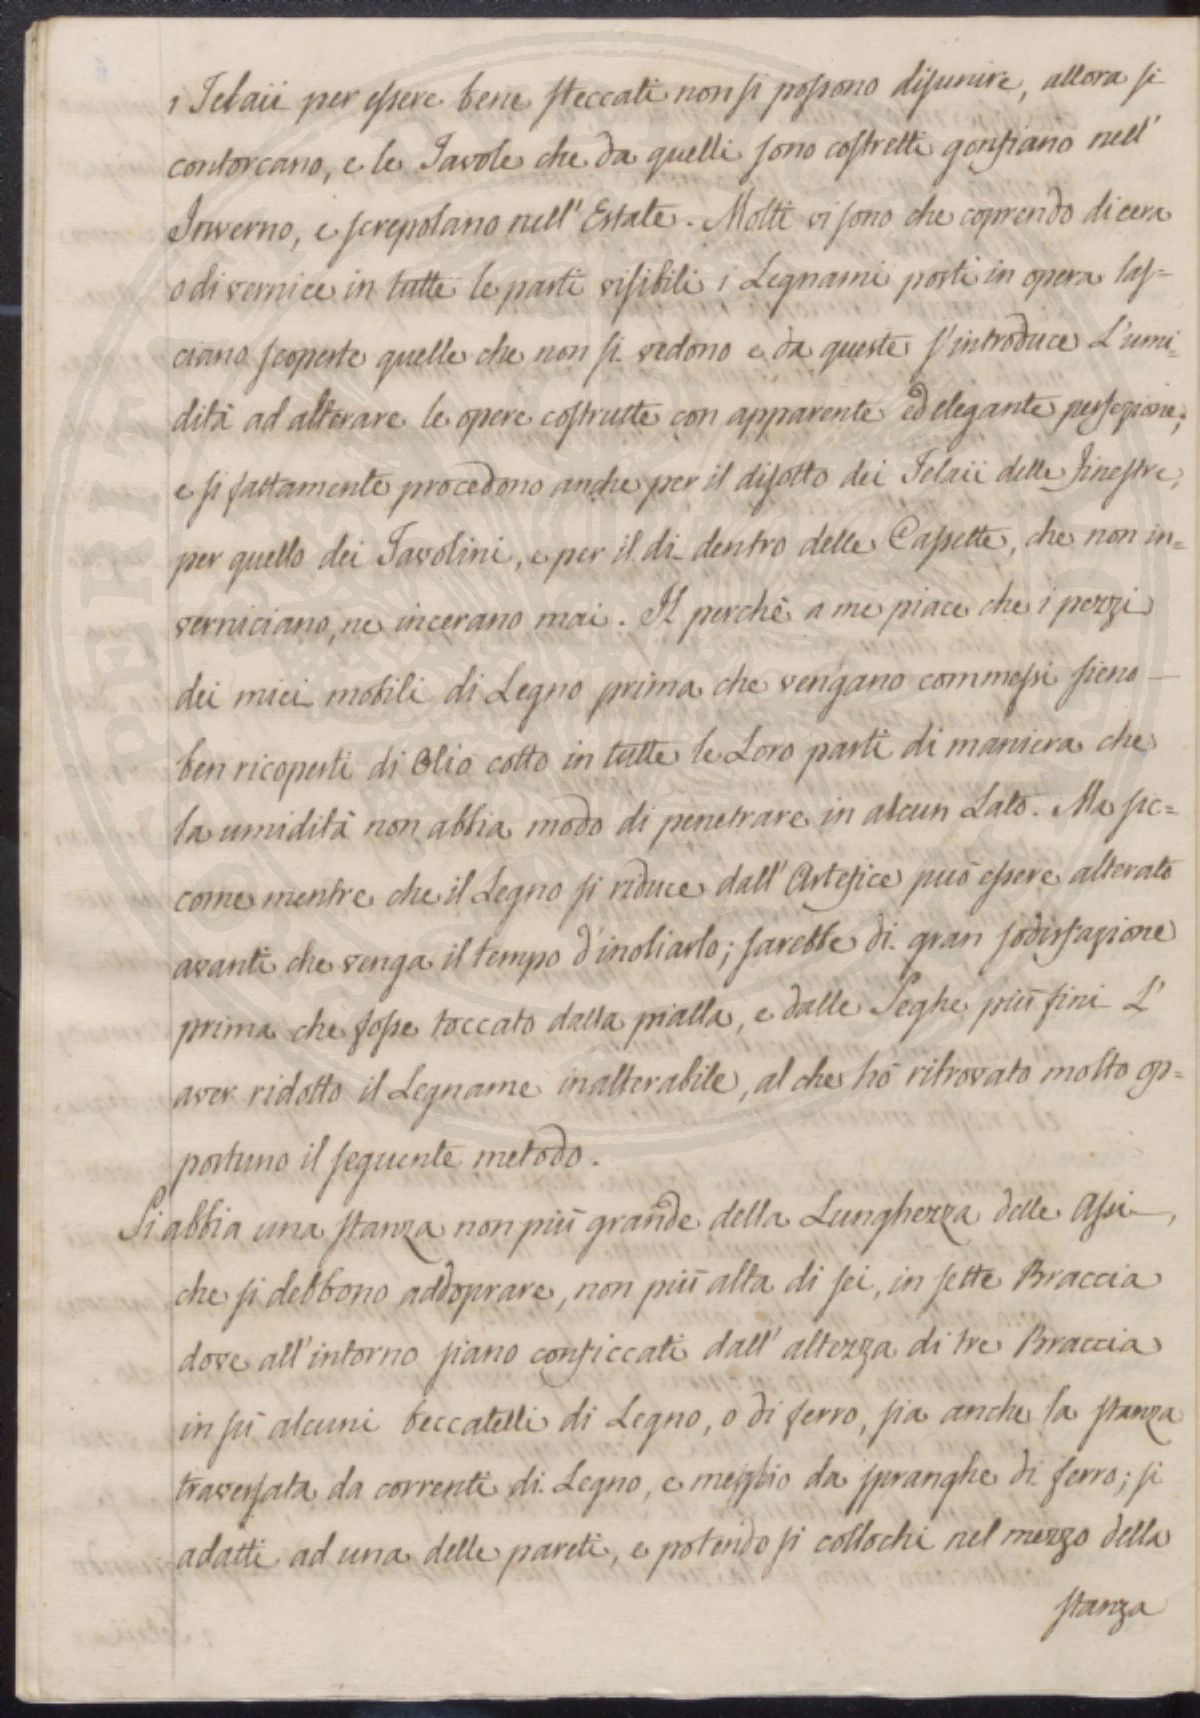 i Telaii per essere bene steccati non si possono disunire, allora si
contorcano, e le Tavole che da quelli sono costretti gonfiano nell'
Inverno, e screpolano nell' Estate. Molti vi sono che coprendo di cera
o di vernice in tutte le parti visibili i Legnami posti in opera las=
ciano scoperte quelle che non si vedono e da queste s'introduce L'umi=
dità ad alterare le opere costrutte con apparente ed elegante perfezione;
e si fattamente procedono anche per il disotto dei Telaii delle Finestre,
per quello dei Tavolini, e per il di dentro delle Cassette, che non in=
verniciano, ne incerano mai. Il perchè a me piace che i pezzi
dei miei mobili di Legno prima che vengano commessi sieno —
ben ricoperti di Olio cotto in tutte le Loro parti di maniera che
la umidità non abbia modo di penetrare in alcun Lato. Ma sic=
come mentre che il Legno si riduce dall' Artefice può essere alterato
avanti che venga il tempo d'inoliarlo; sarebbe di gran sodisfazione
prima che fosse toccato dalla pialla, e dalle Seghe più fini L'
aver ridotto il Legname inalterabile, al che hò ritrovato molto op=
portuno il seguente metodo.
Si abbia una stanza non più grande della Lunghezza delle Assi,
che si debbono addoprare, non più alta di sei, in sette Braccia
dove all'intorno siano conficcati dall' altezza di tre Braccia
in sù alcuni beccatelli di Legno, o di ferro, sia anche la stanza
traversata da correnti di Legno, e meglio da spranghe di ferro; si
adatti ad una delle pareti, e potendo si collochi nel mezzo della
stanza